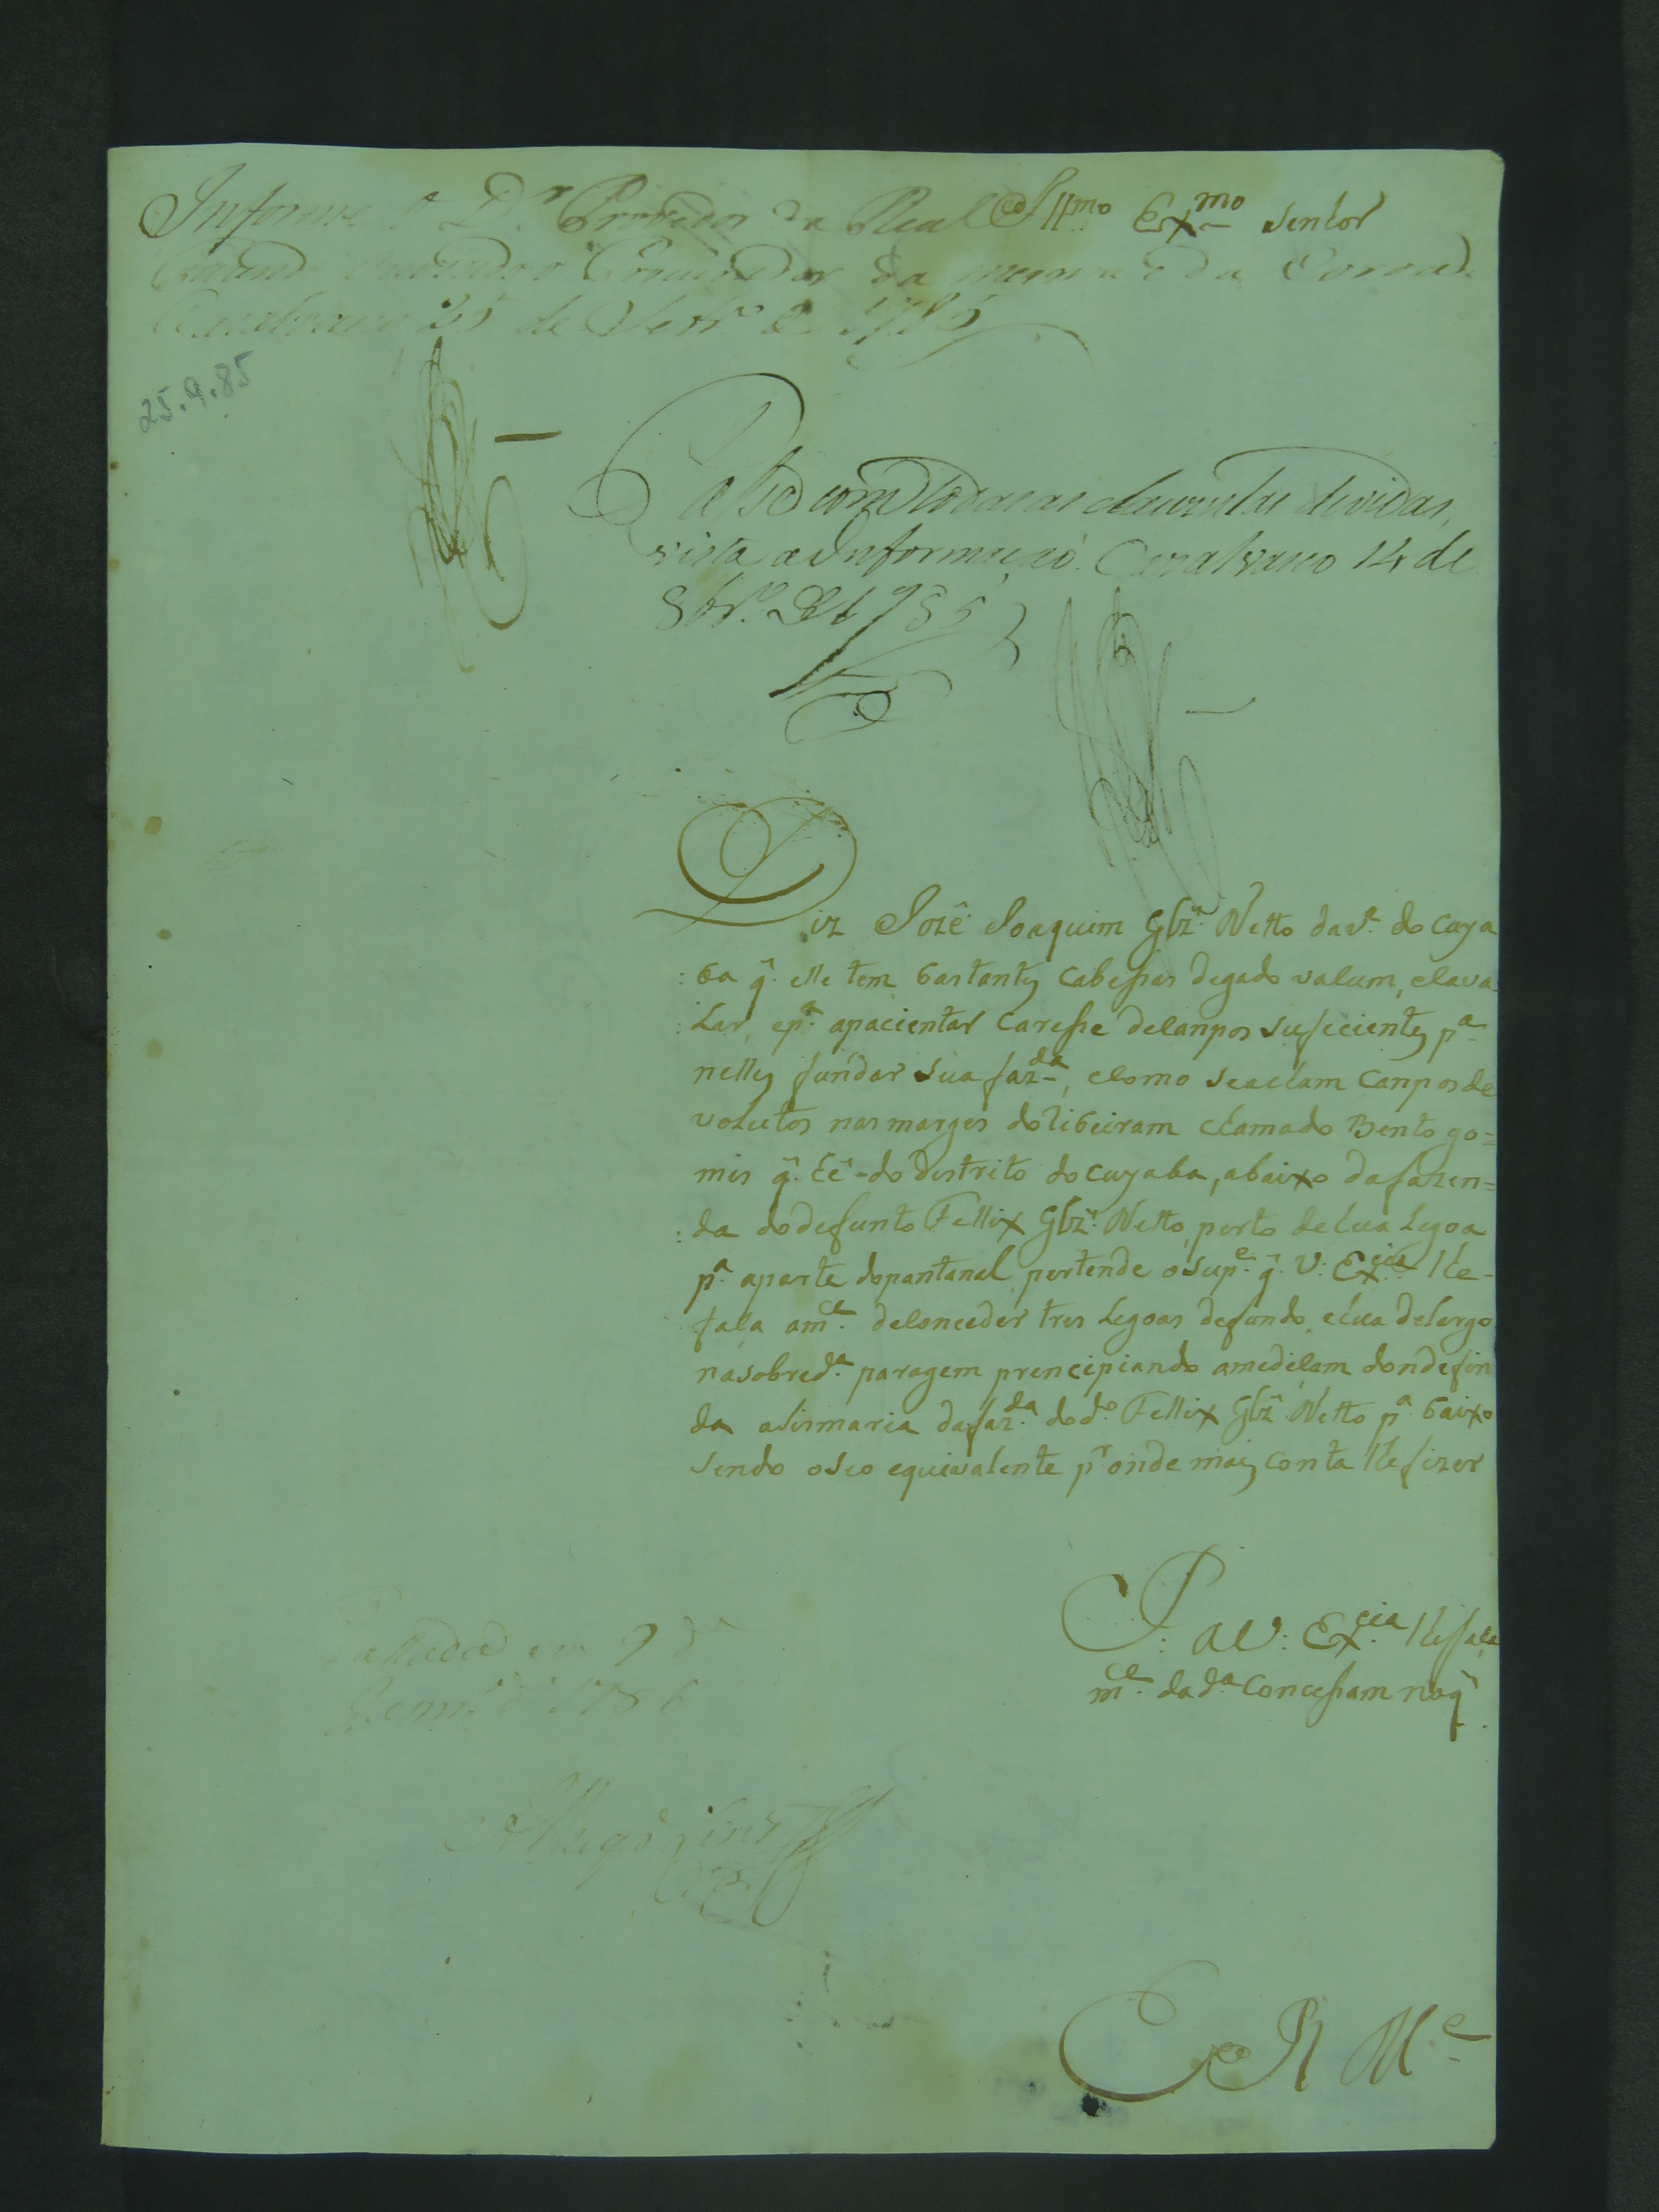 Informe o D.r Provedor da Real Ill.mo Ex.mo Senhor
Fazenda ouvindo o Procurador da mesma e da Coroa.
Cazalvasco 25 de Setbr.o de 1785
25.9.85
Passe com todas as clauzulas devidas,
vista a Informação. Cazalvasco 14 de
8br.o de 1785
Diz Jozê Joaquim Glz' Netto da v.a do Cuya
:ba q̃. elle tem bastantes cabessas de gado vacum, e cava
:lar, e p.a apacientar caresse de canpos suficientes p.a
nelles fundar sua faz.da, e como se acham canpos de
volutos nas margẽs do ribeiram chamado Bento go=
mes q̃. hê do destrito do cuyaba, abaixo da fazen=
:da do defunto Fellix Glz' Netto, perto de hua legoa
p.a a parte do pantanal, pertende o sup.e q̃. V: Ex.cia lhe
faça a m.ce de conceder tres legoas de fundo, e hua de largo
na sobred.a paragem prencipiando a medicam donde fin
da a sismaria da faz.da do d.o Fellix Glz' Netto p.a baixo
sendo o seo equivalente p.r onde mais conta lhe fizer
P: a V: Ex.cia lhe faça
m.ce da d.a concessam no q̃
Passada em 9 de
Janr.o de 1786
E R M.e